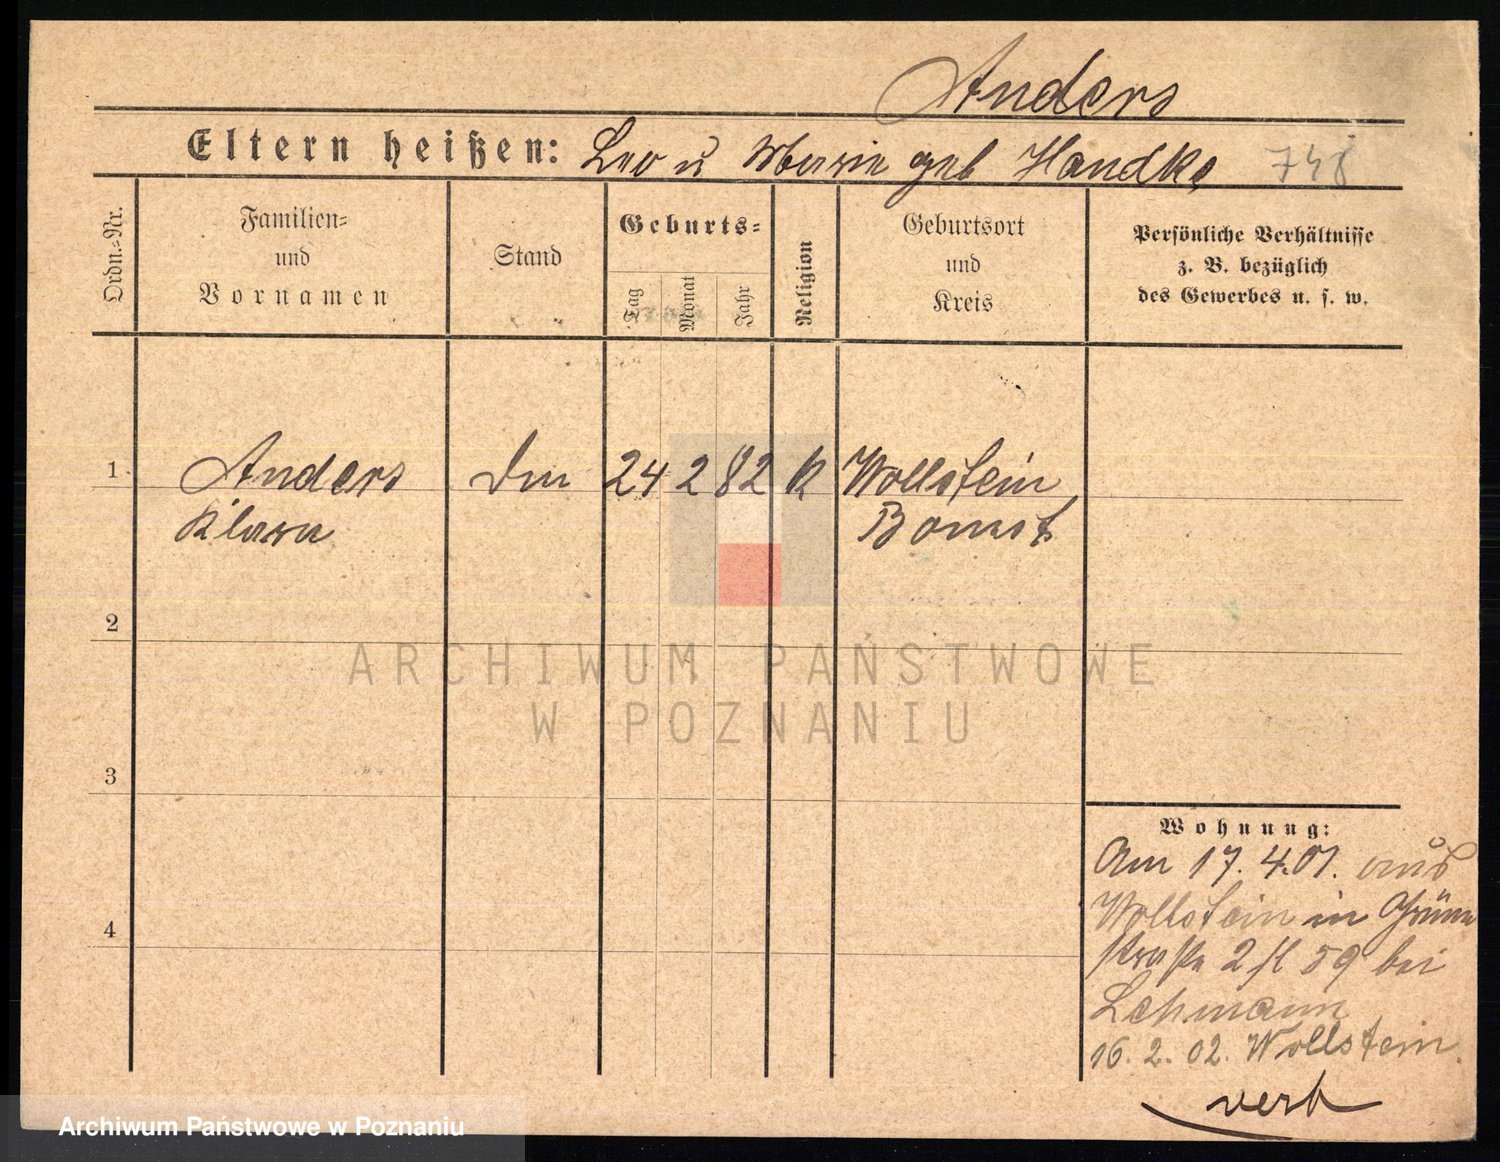 Anders
Eltern heißen: Leo u Marie geb Handke 748
Ordn.=Nr.
Familien=
und
Vornamen
Stand
Geburts=
Tag
Monat
Jahr
Religion
Geburtsort
und
Kreis
Persönliche Verhältnisse
z. B. bezüglich
des Gewerbes u. s. w.
1 Anders 24 2 82 K Wollstein
Klara Bomst
2
3
4
Wohnung:
Am 17. 4. 01. aus
Wollstein in Grüne
straße 2 59 bei
Lehmann
16. 2. 02. Wollstein.
verh
ARCHIWUM PAŃSTWOWE
W POZNANIU
Archiwum Państwowe w Poznaniu